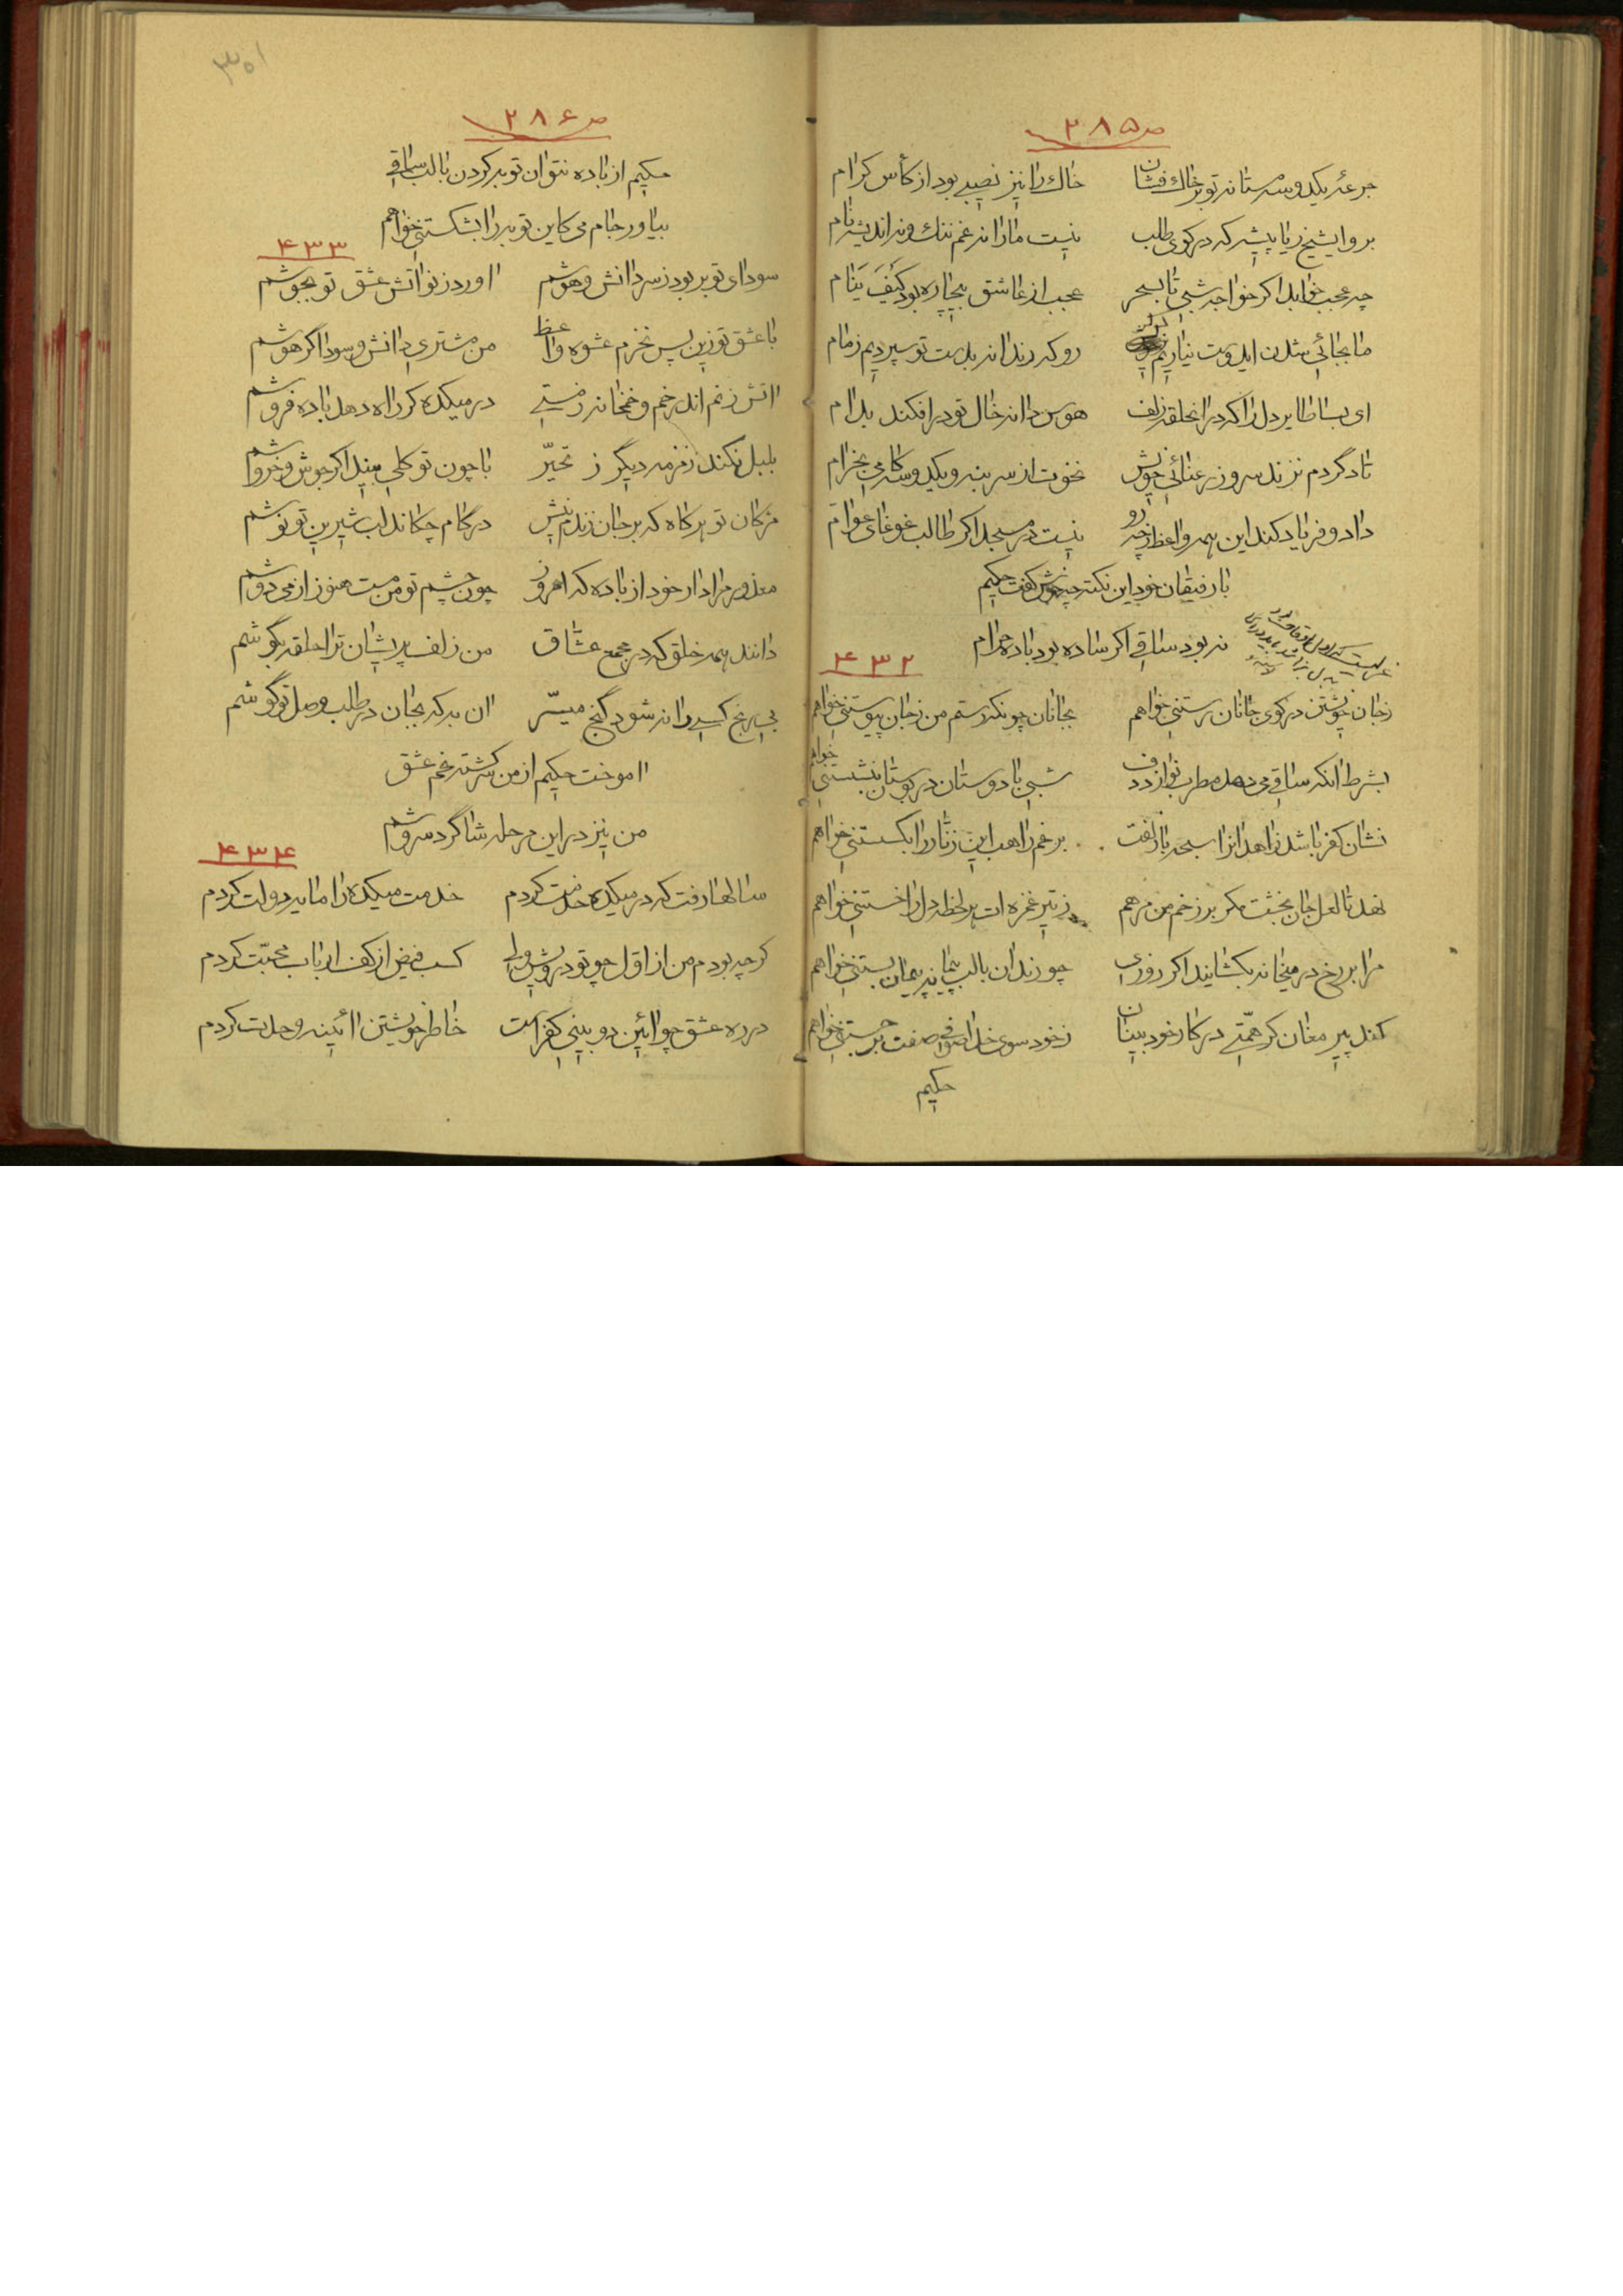 ص ۲۸۵
جرعهٔ یکدوسه مستانه تو بر خاک فشان خاک را نیز نصیبی بود از کأس کرام
برو ایشیخ ریا پیشه که در کوی طلب نیست ما را نه غم ننک و نه اندیشه نام
چه عجب خوابد اکر خواجه شبی تا بسحر عجب از عاشق بیچاره بود کَیْفَ یَنام
ما بجائی شدن ایدوست نیاریم رو که رندانه بدست تو سپردیم زمام
ای بسا طایر دل را که در انحلقه زلف هوس دانه خال تو درافکند بدام
تا دگر دم نزند سرو ز رعنائی خویش نخوت از سر بنه و یکدوسه کامی بخرام
داد و فریاد کند این همه واعظ ز چه رو نیست در مسجد اکر طالب غوغای عوام
با رفیقان خود این نکته چه خوش گفت حکیم
نه بود ساقی اکر ساده بود باده حرام
۴۳۲
ز جان خویشتن در کوی جانان رستنی خواهم بجانان چونکه رستم من ز جان پیوستنی خواهم
بشرط انکه ساقی می دهد مطرب نوازد دف شبی با دوستان در بوستان بنشستنی خواهم
نشان کفر باشد زاهد انرا سبحه با زلفت برغم راهب این زنار را بکسستنی خواهم
نهد تا لعل جان بخشت مکر بر زخم من مرهم ز تیر غمزه ات هر لحظه دل را خستنی خواهم
مرا بر رخ در میخانه بکشایند اکر روزی چو رندان با لب پیمانه پیمان بستنی خواهم
کند پیر مغان کر همتی در کار خود بینان ز خود سوی خدا صوفی صفت برجستنی خواهم
حکیم
۳۰۱
ص ۲۸۶
حکیم از باده نتوان توبه کردن با لب ساقی
بیاور جام می کاین توبه را بشکستنی خواهم
۴۳۳
سودای تو بر بود ز سر دانش و هوشم اورد ز نو اتش عشق تو بجوشم
با عشق تو زین پس نخرم عشوه واعظ من مشتری دانش و سوداگر هوشم
اتش زنم اندر خم و خمخانه ز مستی در میکده کر راه دهد باده فروشم
بلبل نکند زمزمه دیگر ز تحیّر با چون تو کلی بیند اکر جوش و خروشم
مژکان تو هر کاه که بر جان زندم نیش در کام چکاند لب شیرین تو نوشم
معذور مرا دار خود از باده که امروز چون چشم تو من مست هنوز از می دوشم
دانند همه خلق که در مجمع عشاق من زلف پریشان ترا حلقه بگوشم
بی رنج کسی را نه شود گنج میسّر ان به که بجان در طلب وصل تو کوشم
اموخت حکیم از من سرکشته غم عشق
من نیز در این مرحله شاگرد سروشم
۴۳۴
سالها رفت که در میکده خدمت کردم خدمت میکده را مایه دولت کردم
کر چه بودم من از اول چو تو درویش ولی کسب فیض از کف ارباب محبّت کردم
در ره عشق چو ائین دو بینی کفر است خاطر خویشتن ائینه وحدت کردم